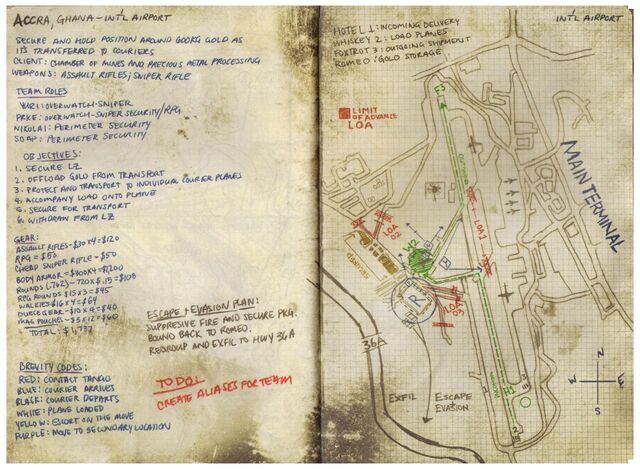 ACCRA, GHANA - INT'L AIRPORT
SECURE AND HOLD POSITION AROUND 600KG GOLD AS
IT'S TRANSFERRED TO COURIERS
CLIENT: CHAMBER OF MINES AND PRECIOUS METAL PROCESSING
WEAPONS: ASSAULT RIFLES; SNIPER RIFLE
TEAM ROLES
YURI: OVERWATCH-SNIPER
PRICE: OVERWATCH-SNIPER SECURITY/RPG
NIKOLAI: PERIMETER SECURITY
SOAP: PERIMETER SECURITY
OBJECTIVES:
1. SECURE LZ
2. OFFLOAD GOLD FROM TRANSPORT
3. PROTECT AND TRANSPORT TO INDIVIDUAL COURIER PLANES
4. ACCOMPANY LOAD ONTO PLANE
5. SECURE FOR TRANSPORT
6. WITHDRAW FROM LZ
GEAR:
ASSAULT RIFLES-$30X4=$120
RPG = $50
CHEAP SNIPER RIFLE = $50
BODY ARMOR = $300X4=$1,200
ROUNDS (.762)-720X$.15=$108
RPG ROUNDS $15X3=$45
WALKIES $16X4=$64
DUECE GEAR-$10X4=$40
MAG POUCHES-$5X12=$60
TOTAL: $1,737
ESCAPE + EVASION PLAN:
SUPPRESIVE FIRE AND SECURE PKG.
BOUND BACK TO ROMEO.
REGROUP AND EXFIL TO HWY 36A
BREVITY CODES:
RED: CONTACT TANGO
BLUE: COURIER ARRIVES
BLACK: COURIER DEPARTS
WHITE: PLANE LOADED
YELLOW: ESCORT ON THE MOVE
PURPLE: MOVE TO SECONDARY LOCATION
TO DO:
CREATE ALIASES FOR TEAM
HOTEL 1: INCOMING DELIVERY
WHISKEY 2: LOAD PLANES
FOXTROT 3: OUTGOING SHIPMENT
ROMEO: GOLD STORAGE
INT'L AIRPORT
LIMIT
OF ADVANCE
LOA
F3
MAIN TERMINAL
LOA1
LOA
02
W2
R
36A
H1
EXFIL
ESCAPE
EVASION
N
W
E
S